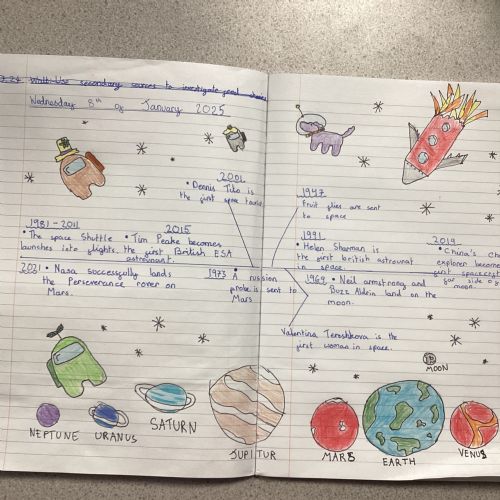 Walt: Use secondary sources to investigate
Wednesday 8th of January 2025
2001
• Dennis Tito is
the first space tourist
1981 - 2011
• The space Shuttle
launches into flights
2015
• Tim Peake becomes
the first British ESA
astronaut.
2021 • Nasa successfully lands
the Perseverance rover on
Mars
1973 • A russian
probe is sent to
Mars
1947
Fruit flies are sent
to space
1991
• Helen Sharman is
the first british astronaut
in space.
2019
• China's Ch
explorer become
first spacecraft
far side of
moon.
1969 • Neil armstrong and
Buzz Aldrin land on the
moon.
Valentina Tereshkova is the
first woman in space.
MOON
NEPTUNE
URANUS
SATURN
JUPITUR
MARS
EARTH
VENUS